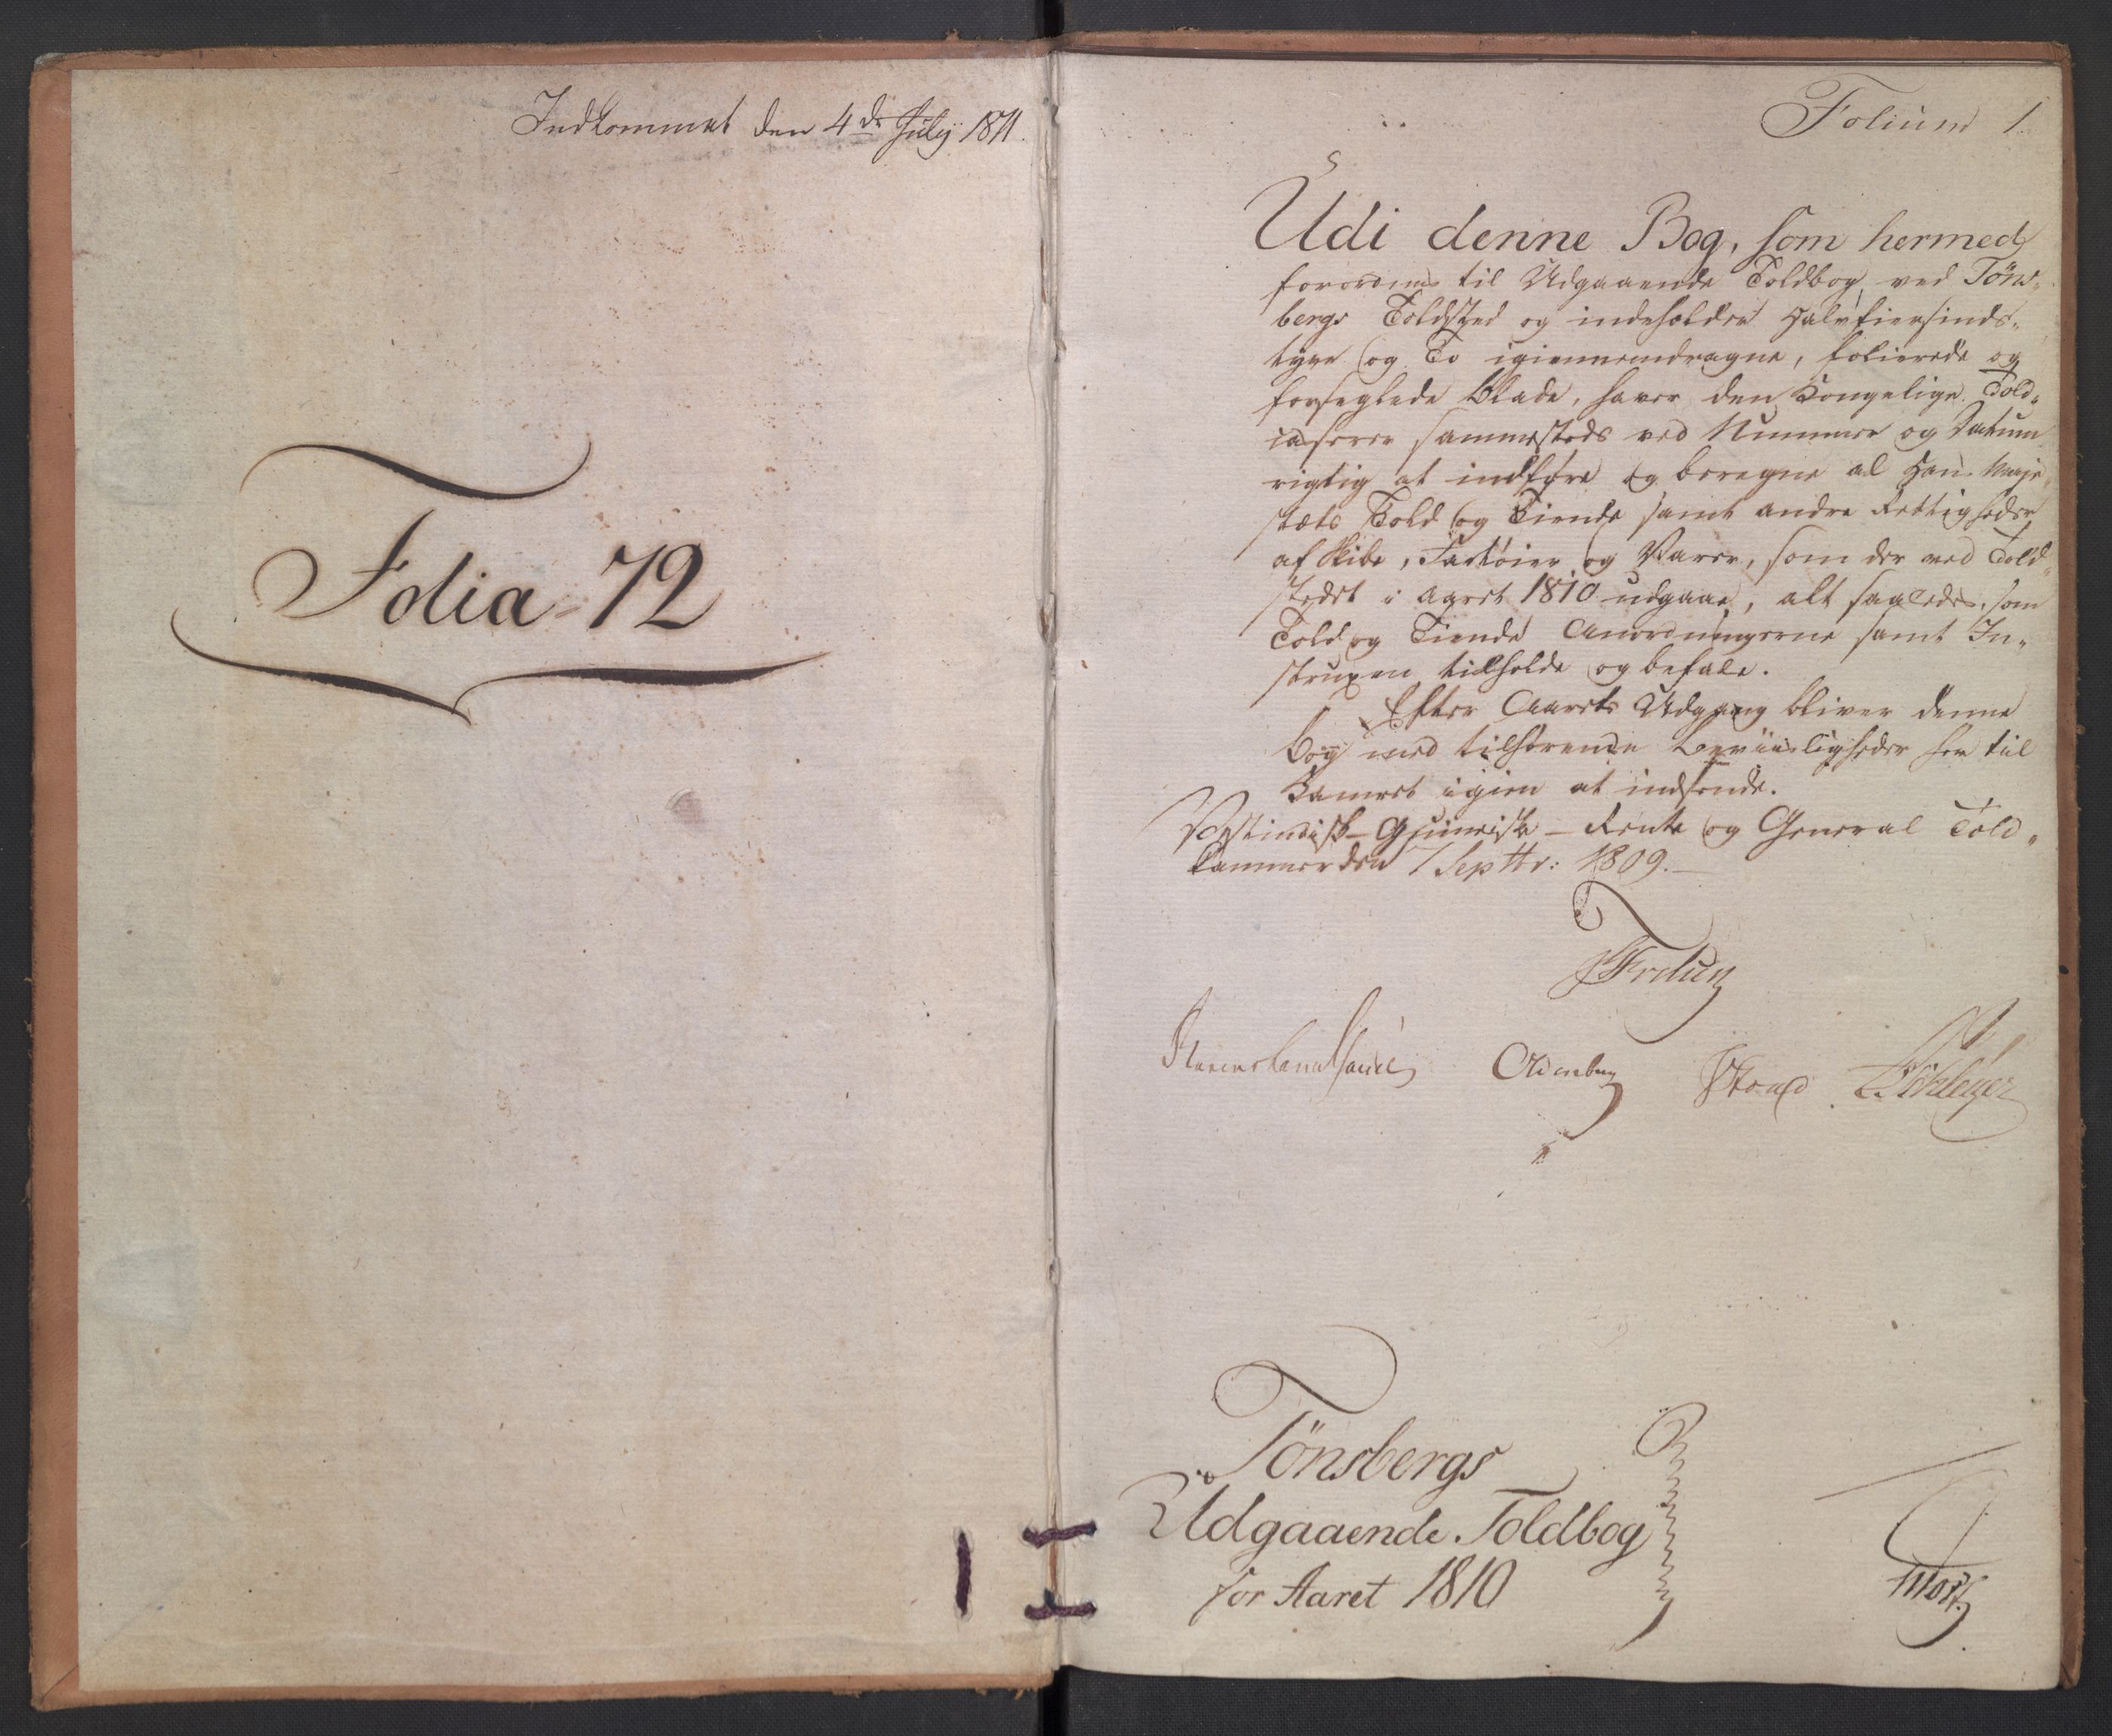 Indkommet den 4de July 1811.
Folia 72
Folium 1.
Udi denne Bog, som hermed
forordnes til Udgaaende Toldbog ved Töns-
bergs Toldsted og indeholder Halvfiersinds-
tyve og To igiennemdragne, folierede og
forseglede Blade, haver den Kongelige Told-
casserer sammesteds ved Nummer og Datum
rigtig at indföre og beregne al Hans Maje-
stæts Told og Tiende samt andre Rettigheder
af Skibe, Fartöier og Varer, som der ved Told-
stedet i Aaret 1810 udgaae, alt saaledes, som
Told og Tiende Anordningerne samt In-
struxen tilholde og befale.
Efter Aarets Udgang bliver denne
Bog med tilhörende Beviisligheder her til
Kamret igien at indsende.
Vestindisk-Guineiske-Rente og General Told-
kammer den 1 Septbr: 1809.
Oldenburg
Tönsbergs
Udgaaende Toldbog
for Aaret 1810